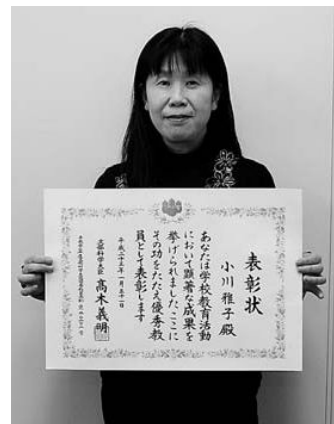 表彰状
小川雅子殿
あなたは学校教育活動
において顕著な成果を
挙げられましたここに
その功をたたえ優秀教
員として表彰します
平成二十三年一月三十一日
文部科学大臣 髙木義明